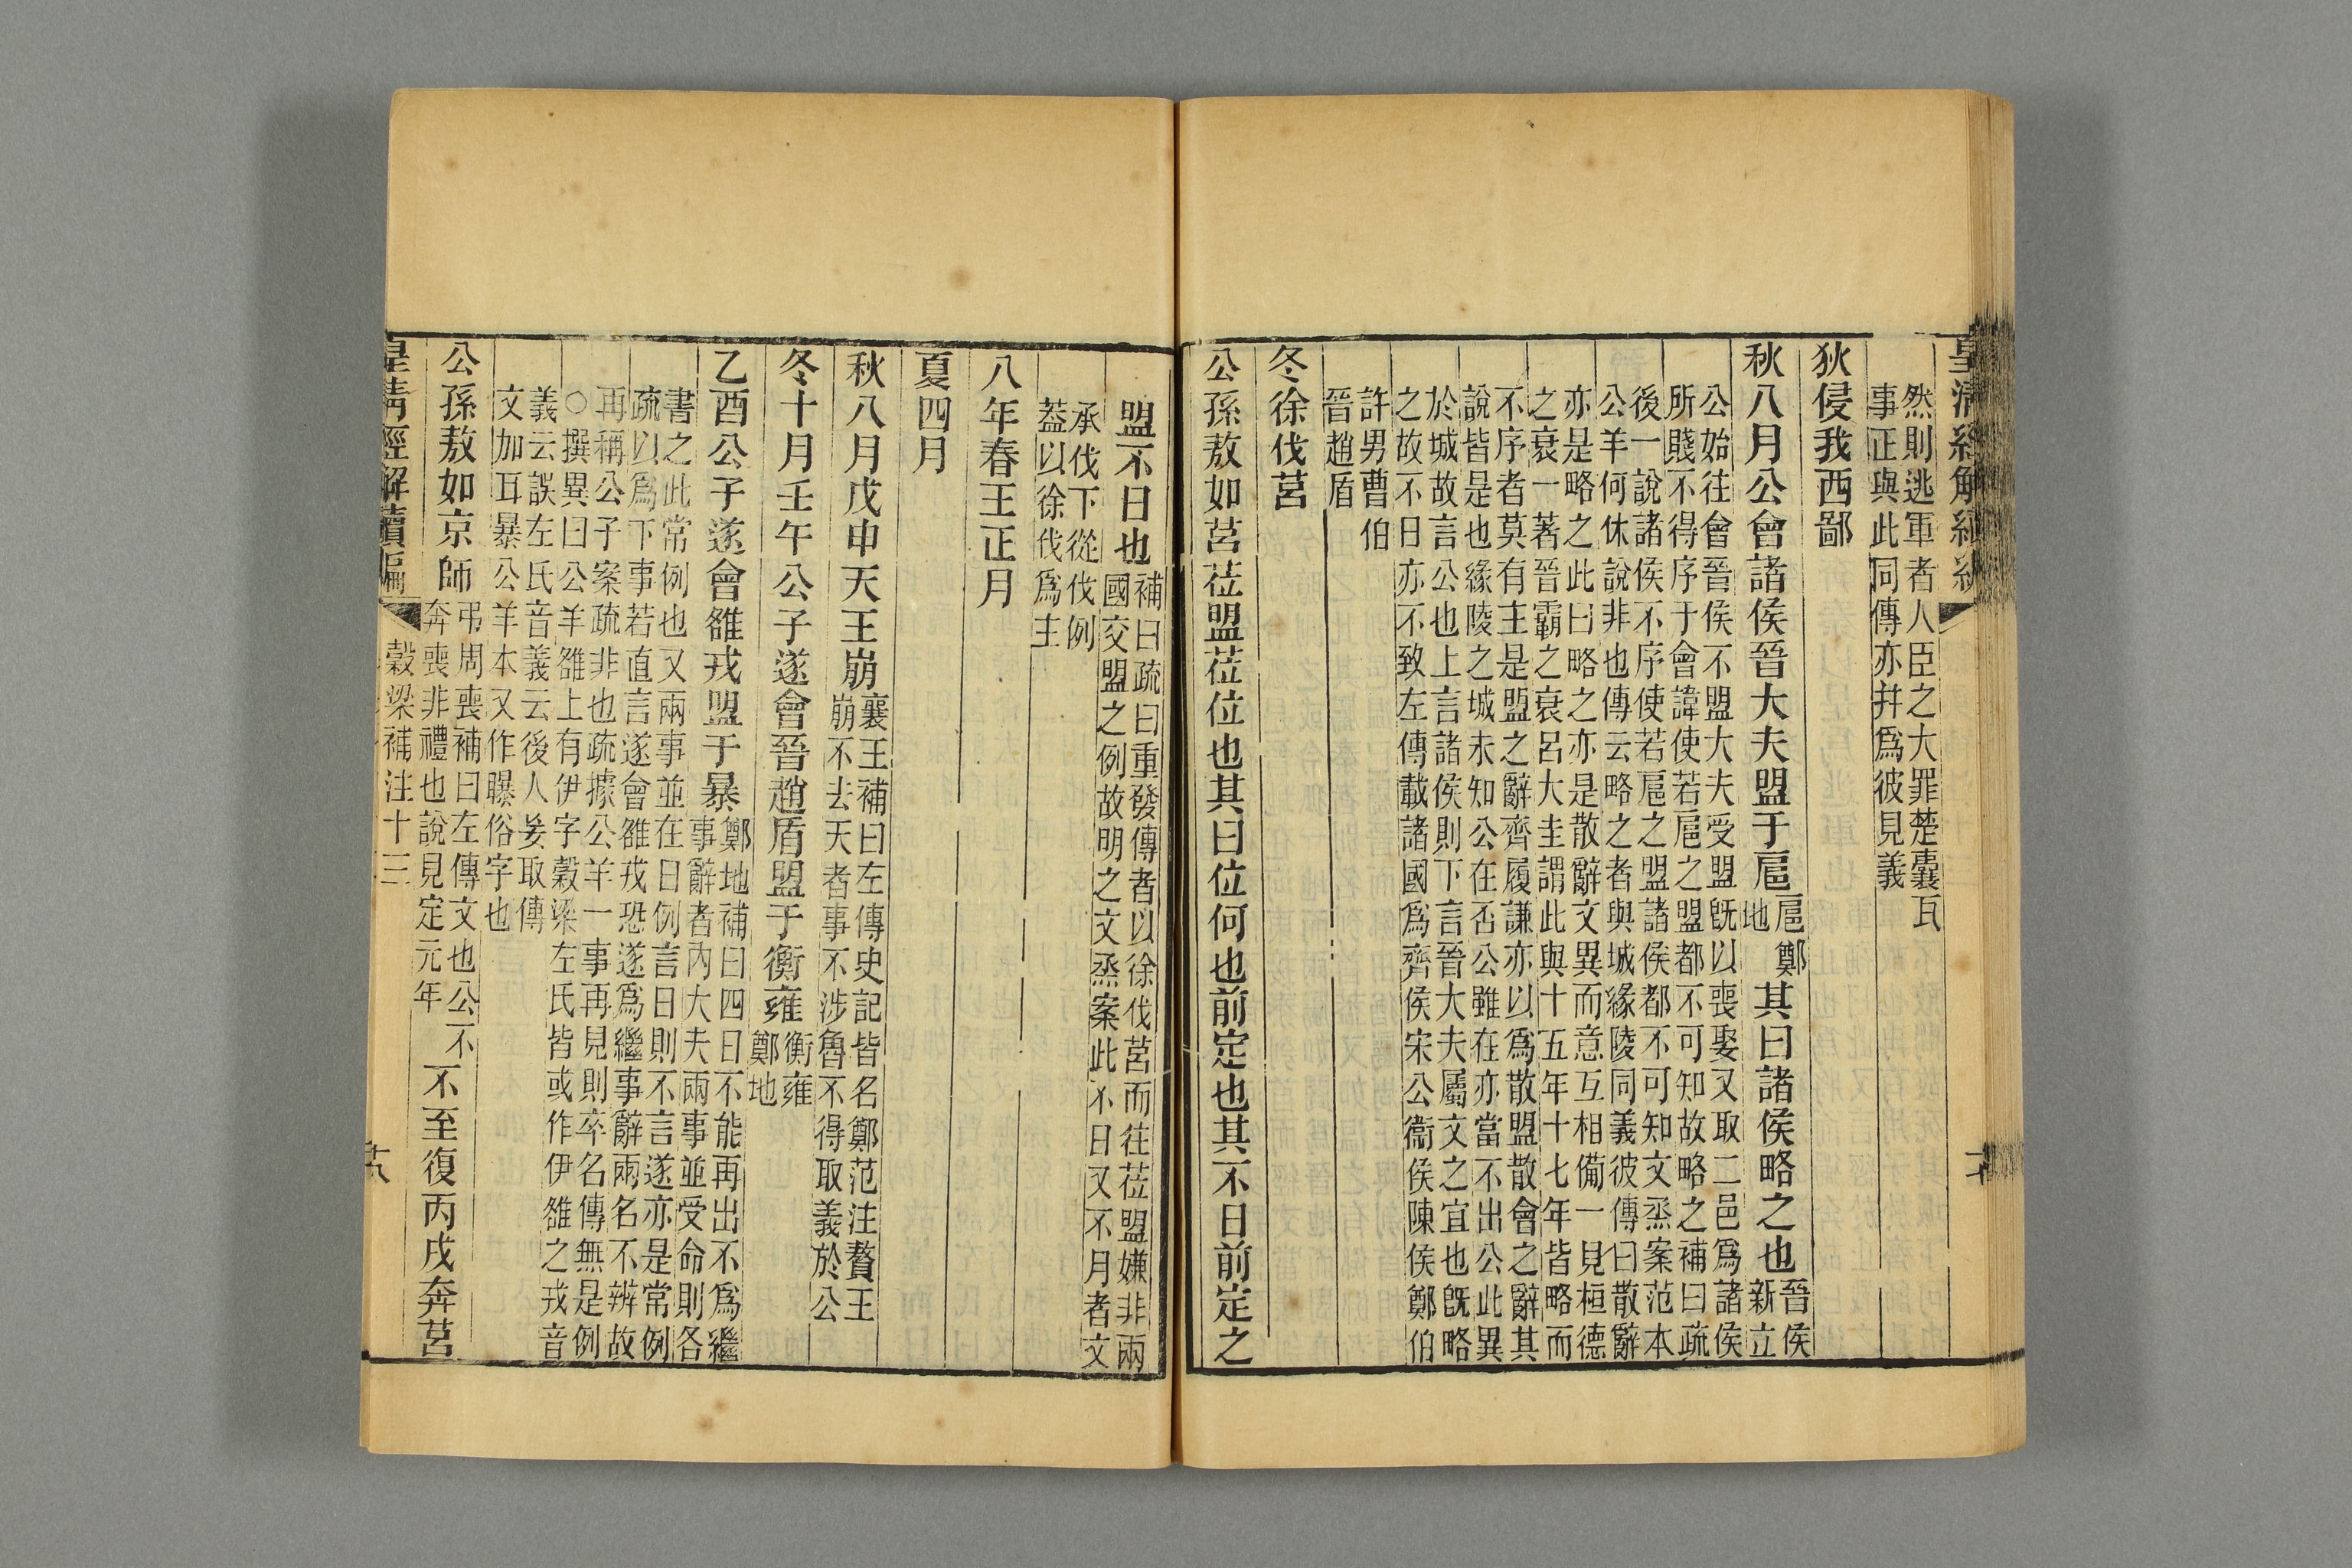 然則逃軍者人臣之大罪楚囊瓦
事正與此同傳亦幷爲彼見義
狄侵我西鄙
秋八月公會諸侯晉大夫盟于扈扈鄭地其曰諸侯略之也晉侯新立
公始往會晉侯不盟大夫受盟旣以喪娶又取二邑爲諸侯
所賤不得序于會諱使若扈之盟都不可知故略之補曰疏
後一說諸侯不序使若扈之盟諸侯都不可知文烝案范本
公羊何休說非也傳云略之者與城緣陵同義彼傳曰散辭
亦是略之此曰略之亦是散辭文異而意互相備一見桓德
之衰一著晉霸之衰呂大圭謂此與十五年十七年皆略而
不序者莫有主是盟之辭齊履謙亦以爲散盟散會之辭其
說皆是也緣陵之城未知公在否公雖在亦當不出公此異
於城故言公也上言諸侯則下言晉大夫屬文之宜也旣略
之故不日亦不致左傳載諸國爲齊侯宋公衞侯陳侯鄭伯
許男曹伯
晉趙盾
冬徐伐莒
公孫敖如莒莅盟莅位也其曰位何也前定也其不日前定之
盟不日也補曰疏曰重發傳者以徐伐莒而往莅盟嫌非兩
國交盟之例故明之文烝案此不日又不月者文
承伐下從伐例
蓋以徐伐爲主
八年春王正月
夏四月
秋八月戊申天王崩襄王補曰左傳史記皆名鄭范注贅王
崩不去天者事不涉魯不得取義於公
冬十月壬午公子遂會晉趙盾盟于衡雍衡雍鄭地
乙酉公子遂會雒戎盟于暴鄭地補曰四日不能再出不爲繼
事辭者內大夫兩事並受命則各
書之此常例也又兩事並在日例言日則不言遂亦是常例
疏以爲下事若直言遂會雒戎恐遂爲繼事辭兩名不辨故
再稱公子案疏非也疏據公羊一事再見則卒名傳無是例
○撰異曰公羊雒上有伊字穀梁左氏皆或作伊雒之戎音
義云誤左氏音義云後人妄取傳
文加耳暴公羊本又作曝俗字也
公孫敖如京師弔周喪補曰左傳文也公不
奔喪非禮也說見定元年不至復丙戌奔莒
皇淸經解續編
穀梁補注十三